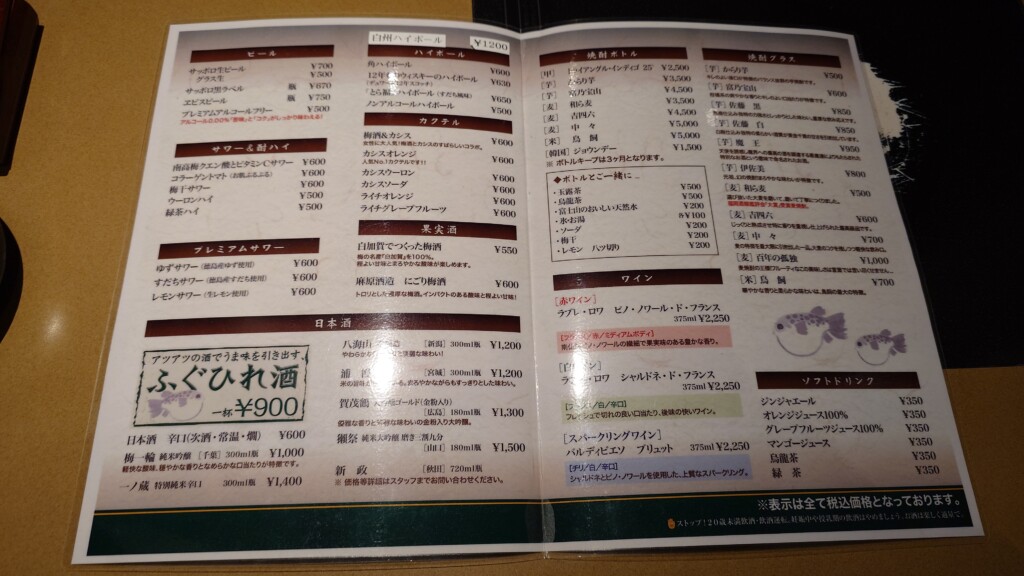 白州ハイボール ¥1200
ビール
サッポロ生ビール ¥700
グラス生 ¥500
サッポロ黒ラベル 瓶 ¥670
ヱビスビール 瓶 ¥750
プレミアムアルコールフリー ¥500
サワー&酎ハイ
南高梅クエン酸とビタミンCサワー ¥600
コラーゲントマト(お肌ぷるぷる) ¥600
梅干サワー ¥600
ウーロンハイ ¥500
緑茶ハイ ¥500
プレミアムサワー
ゆずサワー(徳島産ゆず使用) ¥600
すだちサワー(徳島産すだち使用) ¥600
レモンサワー(生レモン使用) ¥600
ハイボール
角ハイボール ¥600
ウィスキーのハイボール ¥630
ハイボール(すだち風味) ¥650
ノンアルコールハイボール ¥500
カクテル
梅酒&カシス ¥600
女性に大人気!梅酒とカシスのすばらしいコラボ。
カシスオレンジ ¥600
人気No.1カクテルです!!
カシスウーロン ¥600
カシスソーダ ¥600
ライチオレンジ ¥600
ライチグレープフルーツ ¥600
果実酒
白加賀でつくった梅酒 ¥550
梅の名産「白加賀」を100%。
程よい甘味とまろやかな酸味が楽しめます。
麻原酒造 にごり梅酒 ¥600
日本酒
アツアツの酒でうま味を引き出す、
ふぐひれ酒
一杯 ¥900
日本酒 辛口(次酒・常温・燗) ¥600
梅一輪 純米吟醸 [千葉] 300ml瓶 ¥1,000
軽快な酸味、穏やかな香りとなめらかな口当たりが特徴です。
一ノ蔵 特別純米辛口 300ml瓶 ¥1,400
八海山 [新潟] 300ml瓶 ¥1,200
浦 [宮城] 300ml瓶 ¥1,200
賀茂鶴 ゴールド(金粉入り)
[広島] 180ml瓶 ¥1,300
獺祭 純米大吟醸 磨き三割九分
[山口] 180ml瓶 ¥1,500
新政 [秋田] 720ml瓶
※ 価格等詳細はスタッフまでお問い合わせください。
焼酎ボトル
[甲] トライアングル・インディゴ 25° ¥2,500
[芋] からり芋 ¥3,500
[芋] 富乃宝山 ¥4,500
[麦] 和ら麦 ¥3,500
[麦] 吉四六 ¥4,500
[麦] 中々 ¥5,000
[米] 鳥飼 ¥5,000
[韓国] ジョウンデー ¥1,500
※ ボトルキープは3ヶ月となります。
◆ボトルとご一緒に
・玉露茶 ¥500
・烏龍茶 ¥500
・富士山のおいしい天然水 ¥200
・氷・お湯 各¥100
・ソーダ ¥200
・梅干 ¥200
・レモン 八ツ切り ¥200
ワイン
[赤ワイン]
ラブレ・ロワ ピノ・ノワール・ド・フランス
375ml ¥2,250
ロワ シャルドネ・ド・フランス
375ml ¥2,250
フレッシュで切れの良い口当たり、後味の快いワイン。
[スパークリングワイン]
バルディビエソ ブリュット 375ml ¥2,250
[チリ/白/辛口]
シャルドネとピノ・ノワールを使用した、上質なスパークリング。
焼酎グラス
[芋] からり芋 ¥500
[芋] 富乃宝山 ¥850
[芋] 佐藤 黒 ¥950
[芋] 佐藤 白 ¥850
[芋] 魔王 ¥950
[芋] 伊佐美 ¥800
[麦] 和ら麦 ¥500
[麦] 吉四六 ¥600
[麦] 中々 ¥700
[麦] 百年の孤独 ¥1,000
[米] 鳥飼 ¥700
ソフトドリンク
ジンジャエール ¥350
オレンジジュース100% ¥350
グレープフルーツジュース100% ¥350
マンゴージュース ¥350
烏龍茶 ¥350
緑茶 ¥350
※表示は全て税込価格となっております。